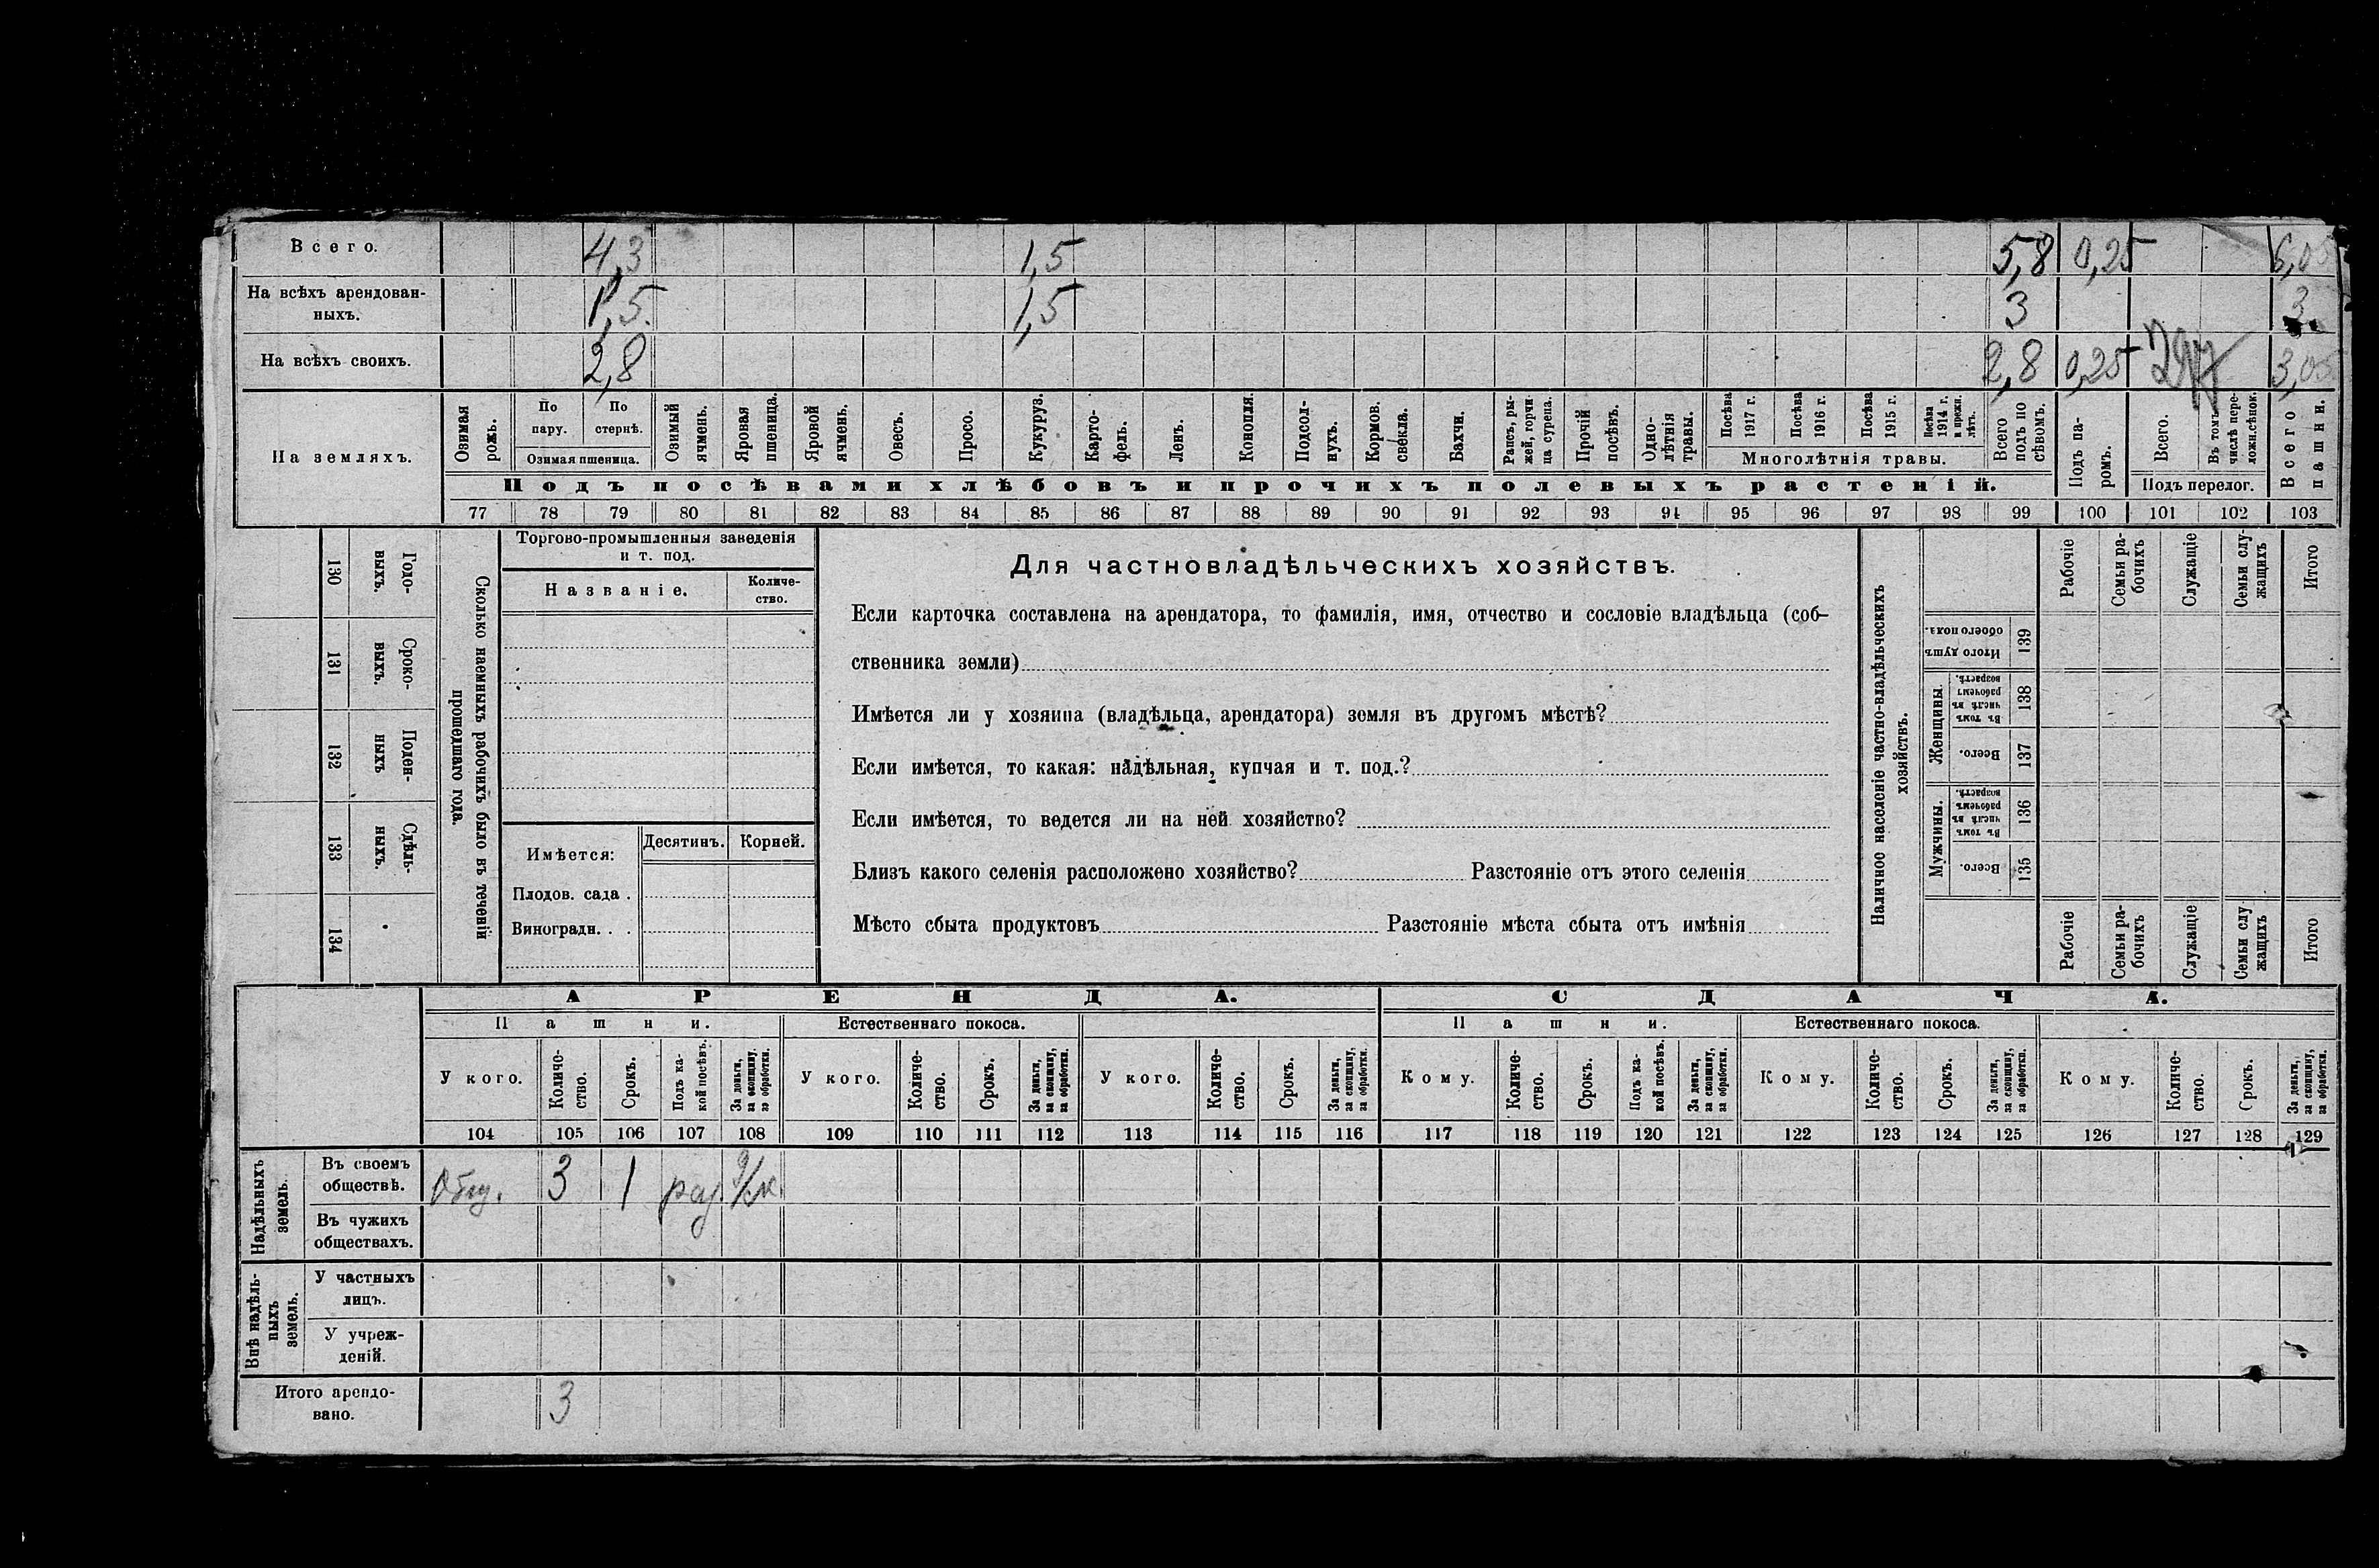 Всего. 4,3 1,5 5,8 0,25 6,05
На всѣхъ арендован-
ныхъ. 1,5 1,5 3 3
На всѣхъ своихъ. 2,8 2,8 0,25 3,05
На земляхъ.
Озимая рожь.
По пару.
По стернѣ.
Озимая пшеница.
Озимый ячмень.
Яровая пшеница.
Яровой ячмень.
Овесъ.
Просо.
Кукуруз.
Карто-
фель.
Ленъ.
Конопля.
Подсол-
нухъ.
Кормов. свекла.
Бахчи.
Рапсъ, ры-
жей, горчи-
ца сурепа.
Прочій посѣвъ.
Одно-
лѣтнія травы.
Посѣва 1917 г.
Посѣва 1916 г.
Посѣва 1915 г.
Посѣва 1914 г. и прежн. лѣтъ.
Многолѣтнія травы.
Всего подъ по сѣвомъ.
Подъ па-
ромъ.
Всего.
Въ томъ числѣ пере-
ложн.сѣнок.
Подъ перелог.
Всего пашни.
Подъ посѣвами хлѣбовъ и прочихъ полевыхъ растеній.
77 78 79 80 81 82 83 84 85 86 87 88 89 90 91 92 93 94 95 96 97 98 99 100 101 102 103
130 Годо-
выхъ.
131 Сроко-
выхъ.
132 Поден-
ныхъ
133 Сдѣль-
ныхъ.
134
Сколько наемныхъ рабочихъ было въ теченіи
прошедшаго года.
Торгово-промышленныя заведенія
и т. под.
Названіе.
Количе-
ство.
Имѣется:
Десятинъ. Корней.
Плодов. сада .
Виноградн. . .
Для частновладѣльческихъ хозяйствъ.
Если карточка составлена на арендатора, то фамилія, имя, отчество и сословіе владѣльца (соб-
ственника земли)
Имѣется ли у хозяина (владѣльца, арендатора) земля въ другомъ мѣстѣ?
Если имѣется, то какая: надѣльная, купчая и т. под.?
Если имѣется, то ведется ли на ней хозяйство?
Близъ какого селенія расположено хозяйство? Разстояніе отъ этого селенія
Мѣсто сбыта продуктовъ Разстояніе мѣста сбыта отъ имѣнія
Наличное населеніе частно-владѣльческихъ
хозяйствъ.
Рабочіе
Семьи ра-
бочихъ
Служащіе
Семьи слу-
жащихъ
Итого
Итого душъ обоего пола. 139
Женщины.
Въ томъ числѣ въ рабочемъ возрастѣ. 138
Всего. 137
Мужчины.
Въ томъ числѣ въ рабочемъ возрастѣ. 136
Всего. 135
Рабочіе
Семьи ра-
бочихъ
Служащіе
Семьи слу
жащихъ
Итого
АРЕНДА. СДАЧА.
Пашни. Естественнаго покоса. Пашни. Естественнаго покоса.
У кого.
Количе-
ство.
Срокъ.
Подъ ка-
кой посѣвъ.
За деньги, за скопщину, за обработки.
У кого.
Количе-
ство.
Срокъ.
За деньги, за скопщину, за обработки.
У кого.
Количе-
ство.
Срокъ.
За деньги, за скопщину, за обработки.
Кому.
Количе-
ство.
Срокъ.
Подъ ка-
кой посѣвъ.
За деньги, за скопщину, за обработки.
Кому.
Количе-
ство.
Срокъ.
За деньги, за скопщину, за обработки.
Кому.
Количе-
ство.
Срокъ.
За деньги, за скопщину, за обработки.
104 105 106 107 108 109 110 111 112 113 114 115 116 117 118 119 120 121 122 123 124 125 126 127 128 129
Надѣльныхъ земель.
Въ своемъ
обществѣ. Общ. 3 1
Въ чужихъ
обществахъ.
Внѣ надѣль-
ныхъ земель.
У частныхъ
лицъ.
У учреж-
деній.
Итого арендо-
вано. 3